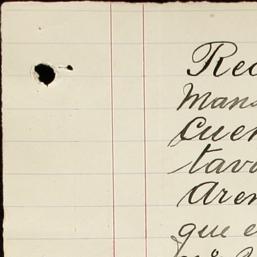 Rec
Mans
Cuen
tava
Aren
que e